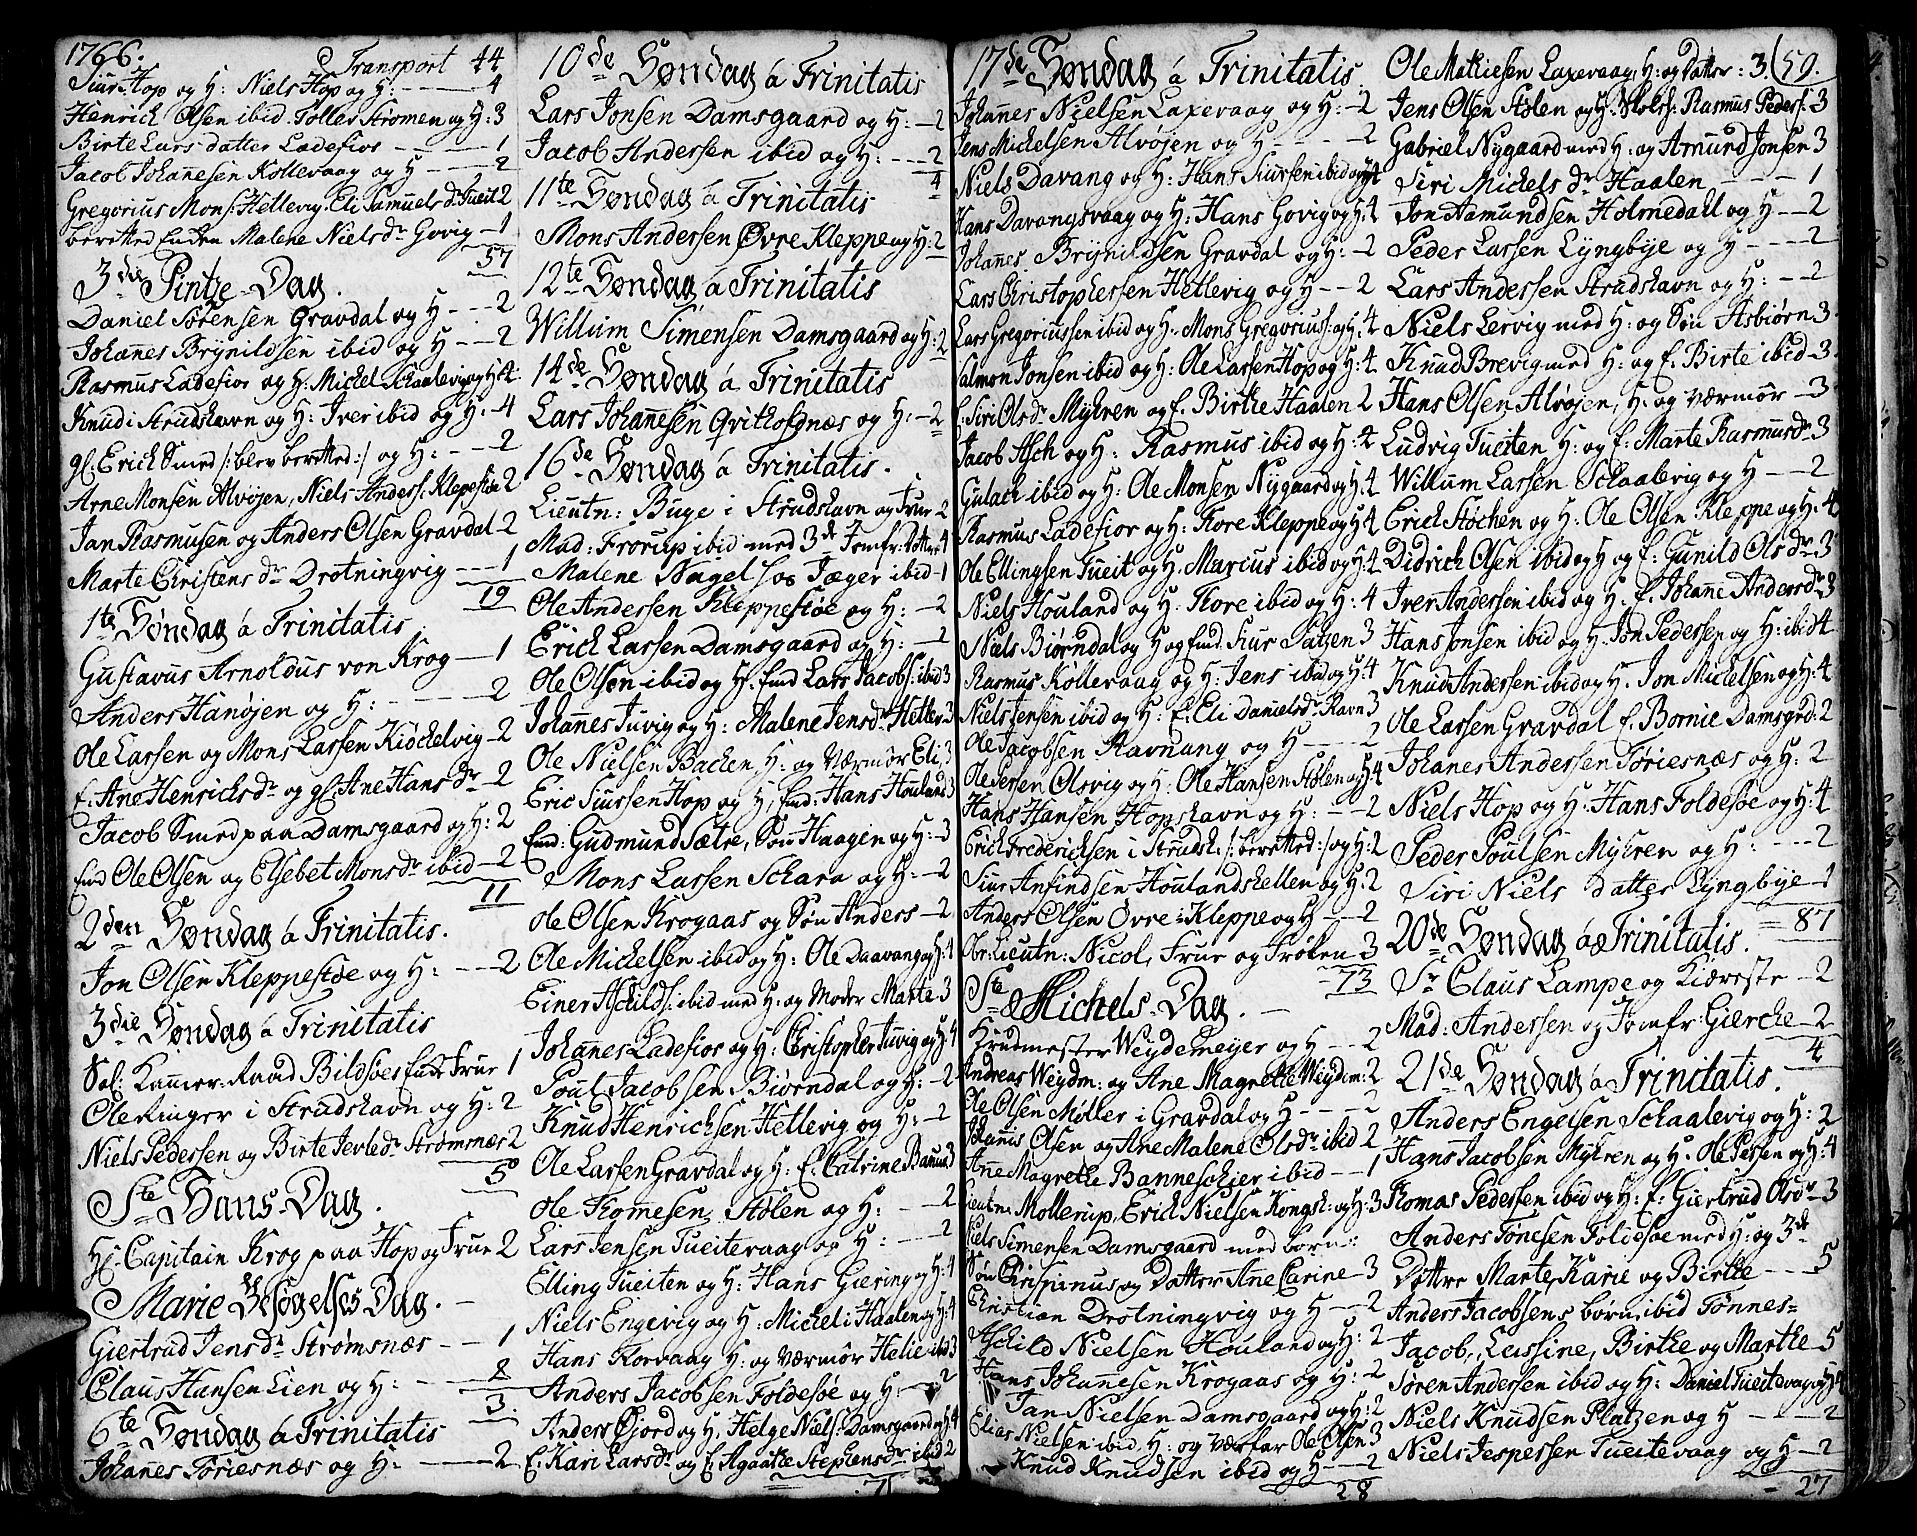 1766. Transport 44
Siur Hop og H: Niels Hop og H: 4
Henrich Olsen ibid. Tolles Strømen og H: 3
Birte Lars datter Ladefior 1
Jacob Johanesen Kollevaag og H 2
Gregorius Mons: Hettevig. Eli Samuels dr Tueit 2
beretted Enken Malene Niels dr Govig 1
57
3die Pintze-Dag.
Daniel Sørensen Gravdal og H 2
Johanes Brynildsen ibid og H 2
Rasmus Ladefior og H: Michel Schaalevig og H: 4
Knud i Strudshavn og H: Iver ibid og H: 4
gl: Erick Smed /: blev beretted :/ og H: 2
Arne Monsen Alvøjen, Niels Anders: Klepestøe 2
Jan Rasmusen og Anders Olsen Gravdal 2
Marte Christens dr Drotningvig 1
19
1te Søndag á Trinitatis
Gustavus Arnoldus von Krog 1
Anders Hanøjen og H: 2
Ole Larsen og Mons Larsen Kiøckelvig 2
f: Ane Henrichs dr og gl: Ane Hans dr 2
Jacob Smed paa Damsgaard og H: 2
Emd Ole Olsen og Elsebet Mons dr ibid 2
11
2den Søndag á Trinitatis.
Jon Olsen Kleppestøe og H: 2
3die Søndag á Trinitatis
Sal: Kamer-Raad Bildsøes Enke Frue 1
Ole Ringer i Strudshavn og H: 2
Niels Pedersen og Birte Jevle dr Strømsnæs 2
5
Ste Hans-Dag.
Hr Capitain Krog paa Hop og Frue 2
Marie Besøgelses Dag.
Giertrud Jens dr Strømsnæs 1
Claus Hansen Lien og H: 2
3.
6te Søndag á Trinitatis
Johanes Toriesnæs og H: 2
10de Søndag á Trinitatis
Lars Jonsen Damsgaard og H: 2
Jacob Andersen ibid og H: 2
4
11te Søndag á Trinitatis
Mons Andersen Øvre Kleppe og H: 2
12te Søndag á Trinitatis
Willum Simensen Damsgaard og H: 2
14de Søndag á Trinitatis
Lars Johanesen Qvithofdnæs og H: 2
16de Søndag á Trinitatis.
Lieutn: Buge i Strudshavn og Frue 2
Mad: Frorup ibid med 3de Jomfr: Dottre 4
Malene Nagel hos Jæger ibid 1
Ole Andersen Kleppestøe og H: 2
Erick Larsen Damsgaard og H: 2
Ole Olsen ibid og H: Emd Lars Jacobs: ibid 3
Johanes Juvig og H: Malene Jens dr Hetlev: 3
Ole Nielsen Backen, H: og Værmor Eli 3
Eric Siursen Hop og H: Emd: Hans Houland 3
Emd: Gudmund Sætre, Søn Haagen og H: 3
Mons Larsen Schara og H: 2
Ole Olsen Krogaas og Søn Anders 2
Ole Michelsen ibid og H: Ole Daavang og H: 4
Einer Aschilds: ibid med H: og Moder Marte 3
Johanes Ladefior og H: Christopher Juvig og H: 4
Poul Jacobsen Biørndal og H: 2
Knud Henrichsen Hettevig og H: 2
Ole Larsen Gravdal og H: f: Catrine Banun 3
Ole Thomesen Stølen og H: 2
Lars Jensen Tueitevaag og H: 2
Elling Tueiten og H: Hans Giering og H: 4
Niels Engevig og H: Michel i Haalen og H: 4
Hans Korvaag H: og Værmor Helie ibid 3
Anders Jacobsen Foldesøe og H: 2
Anders Øjord og H: Helge Niels: Damsgaard og H: 4
f: Kari Lars dr og f: Agaathe Stephens dr ibid 2
71
17de Søndag á Trinitatis
Johannes Nielsen Laxevaag og H: 2
Jens Michelsen Alvøjen og H 2
Niels Davang og H: Hans Siursen ibid og H: 4
Hans Davangsvaag og H: Hans Govig og H: 4
Johanes Brynildsen Gravdal og H: 2
Lars Christophersen Hettevig og H 2
Lars Gregoriussen ibid og H: Mons Gregorius: og H: 4
Salmon Jonsen ibid og H: Ole Larsen Hop og H: 4
f: Siri Ols dr Myhren og f: Birthe Haalen 2
Jacob Asch og H: Rasmus ibid og H: 4
Gulach ibid og H: Ole Monsen Nygaard og H: 4
Rasmus Ladefior og H: Thore Kleppe og H: 4
Ole Ellingsen Tueit og H. Marcus ibid og H: 4
Niels Houland og H: Thore ibid og H: 4
Niels Biørndal og H og Emd: Siur Satzen 3
Rasmus Kollevaag og H: Jens ibid og H: 4
Niels Jensen ibid og H: f: Eli Daniels dr Ravn 3
Ole Jacobsen Stavnang og H 2
Ole Persen Olsvig og H: Ole Hansen Stølen og H: 4
Hans Hansen Hopshavn og H: 2
Erich Frederichsen i Strudsh: /: beretted :/ og H: 2
Siur Ansindsen Houlandshellen og H: 2
Anders Olsen Øvre-Kleppe og H 2
Obr: Lieutn: Nicol, Frue og Frøken 3
73
Ste Michels-Dag.
Krudmester Weydemeyer og H 2
Andreas Weydm: og Ane Magrethe Weydm: 2
Ole Olsen Møller i Gravdal og H 2
Johanis Olsen og Ane Malene Ols dr ibid 2
Ane Magrethe Banneschier ibid 1
Lieutn: Mollerup, Erick Nielsen Kongsh: og H: 3
Niels Simensen Damsgaard med børn:
Søn Chrispinus og Datter Ane Carine 3
Christian Drotningvig og H 2
Aschild Nielsen Houland og H: 2
Hans Johannesen Krogaas og H: 2
Jan Nielsen Damsgaard og H: 2
Elias Nielsen ibid, H: og Værfar Ole Olsen 3
Knud Knudsen ibid og H 2
28
Ole Mathiesen Laxevaag, H: og Datter: 3. (59.
Jens Olsen Stølen og H. Skolh: Rasmus Peders: 3
Gabriel Nygaard med H: og Amund Jonsen 3
Siri Michels dr Haalen 1
Jon Aamundsen Holmedahl og H 2
Peder Larsen Lyngbye og H 2
Lars Andersen Strudshavn og H: 2
Niels Lervig med H: og Søn Asbiørn 3.
Knud Brevig med H: og f: Birte ibid 3.
Hans Olsen Alvøjen, H: og Værmor 3
Ludvig Tueiten H: og f: Marte Rasmus dr 3
Willum Larsen Schaalevig og H 2
Erick Støchen og H: Ole Olsen Kleppe og H: 4
Didrich Olsen ibid og H og f: Gunild Ols dr 3
Iver Andersen ibid og H: f: Johane Anders dr 3
Hans Jonsen ibid og H. Jon Pedersen og H: ibid 4
Knud Andersen ibid og H. Jon Michelsen og H: 4
Ole Larsen Gravdal f: Bornie Damsgrd: 2
Johanes Andersen Toriesnæs og H: 2
Niels Hop og H: Hans Foldesøe og H: 4
Peder Poulsen Myhren og H: 2
Siri Niels datter Lyngbye 1
87
20de Søndag á Trinitatis.
Sr Claus Lampe og Kiæreste 2
Mad: Andersen og Jomfr: Gierche 2
4
21de Søndag á Trinitatis.
Anders Engelsen Schaalevig og H: 2
Hans Jacobsen Myhren og H. Ole Persen og H: 4
Thomas Pedersen ibid og H: f: Giertrud Ols dr 3
Anders Tønesen Folidsøe med H: og 3de
Døttre Marte, Karie og Birthe 5
Anders Jacobsens børn ibid Tønnes=
Jacob, Leusine, Birthe og Marthe 5
Søren Andersen ibid og H: Daniel Tueitevaag og H: 4
Niels Knudsen Platzen og H 2
Niels Jespersen Tueitevaag og H 2
27